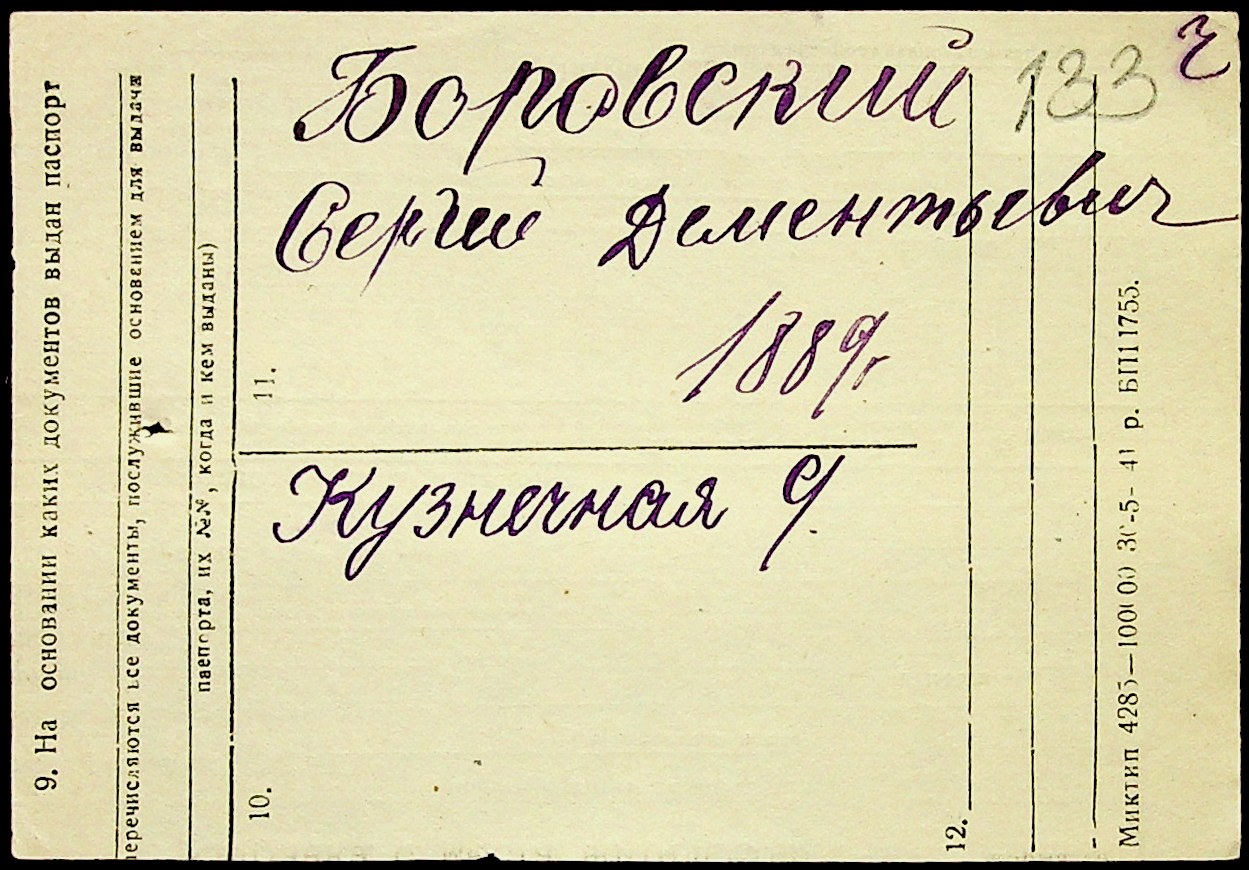 Боровский
133
ч
Сергей Дементьевич
1889г
Кузнечная 9.
9. На основании каких документов выдан паспорт
перечисляются все документы, послужившие основением для выдачи
паепорта, их №№, когда и кем выданы)
10.
11.
12.
Миктип 4285—100000 30-5-41 р. БП11755.